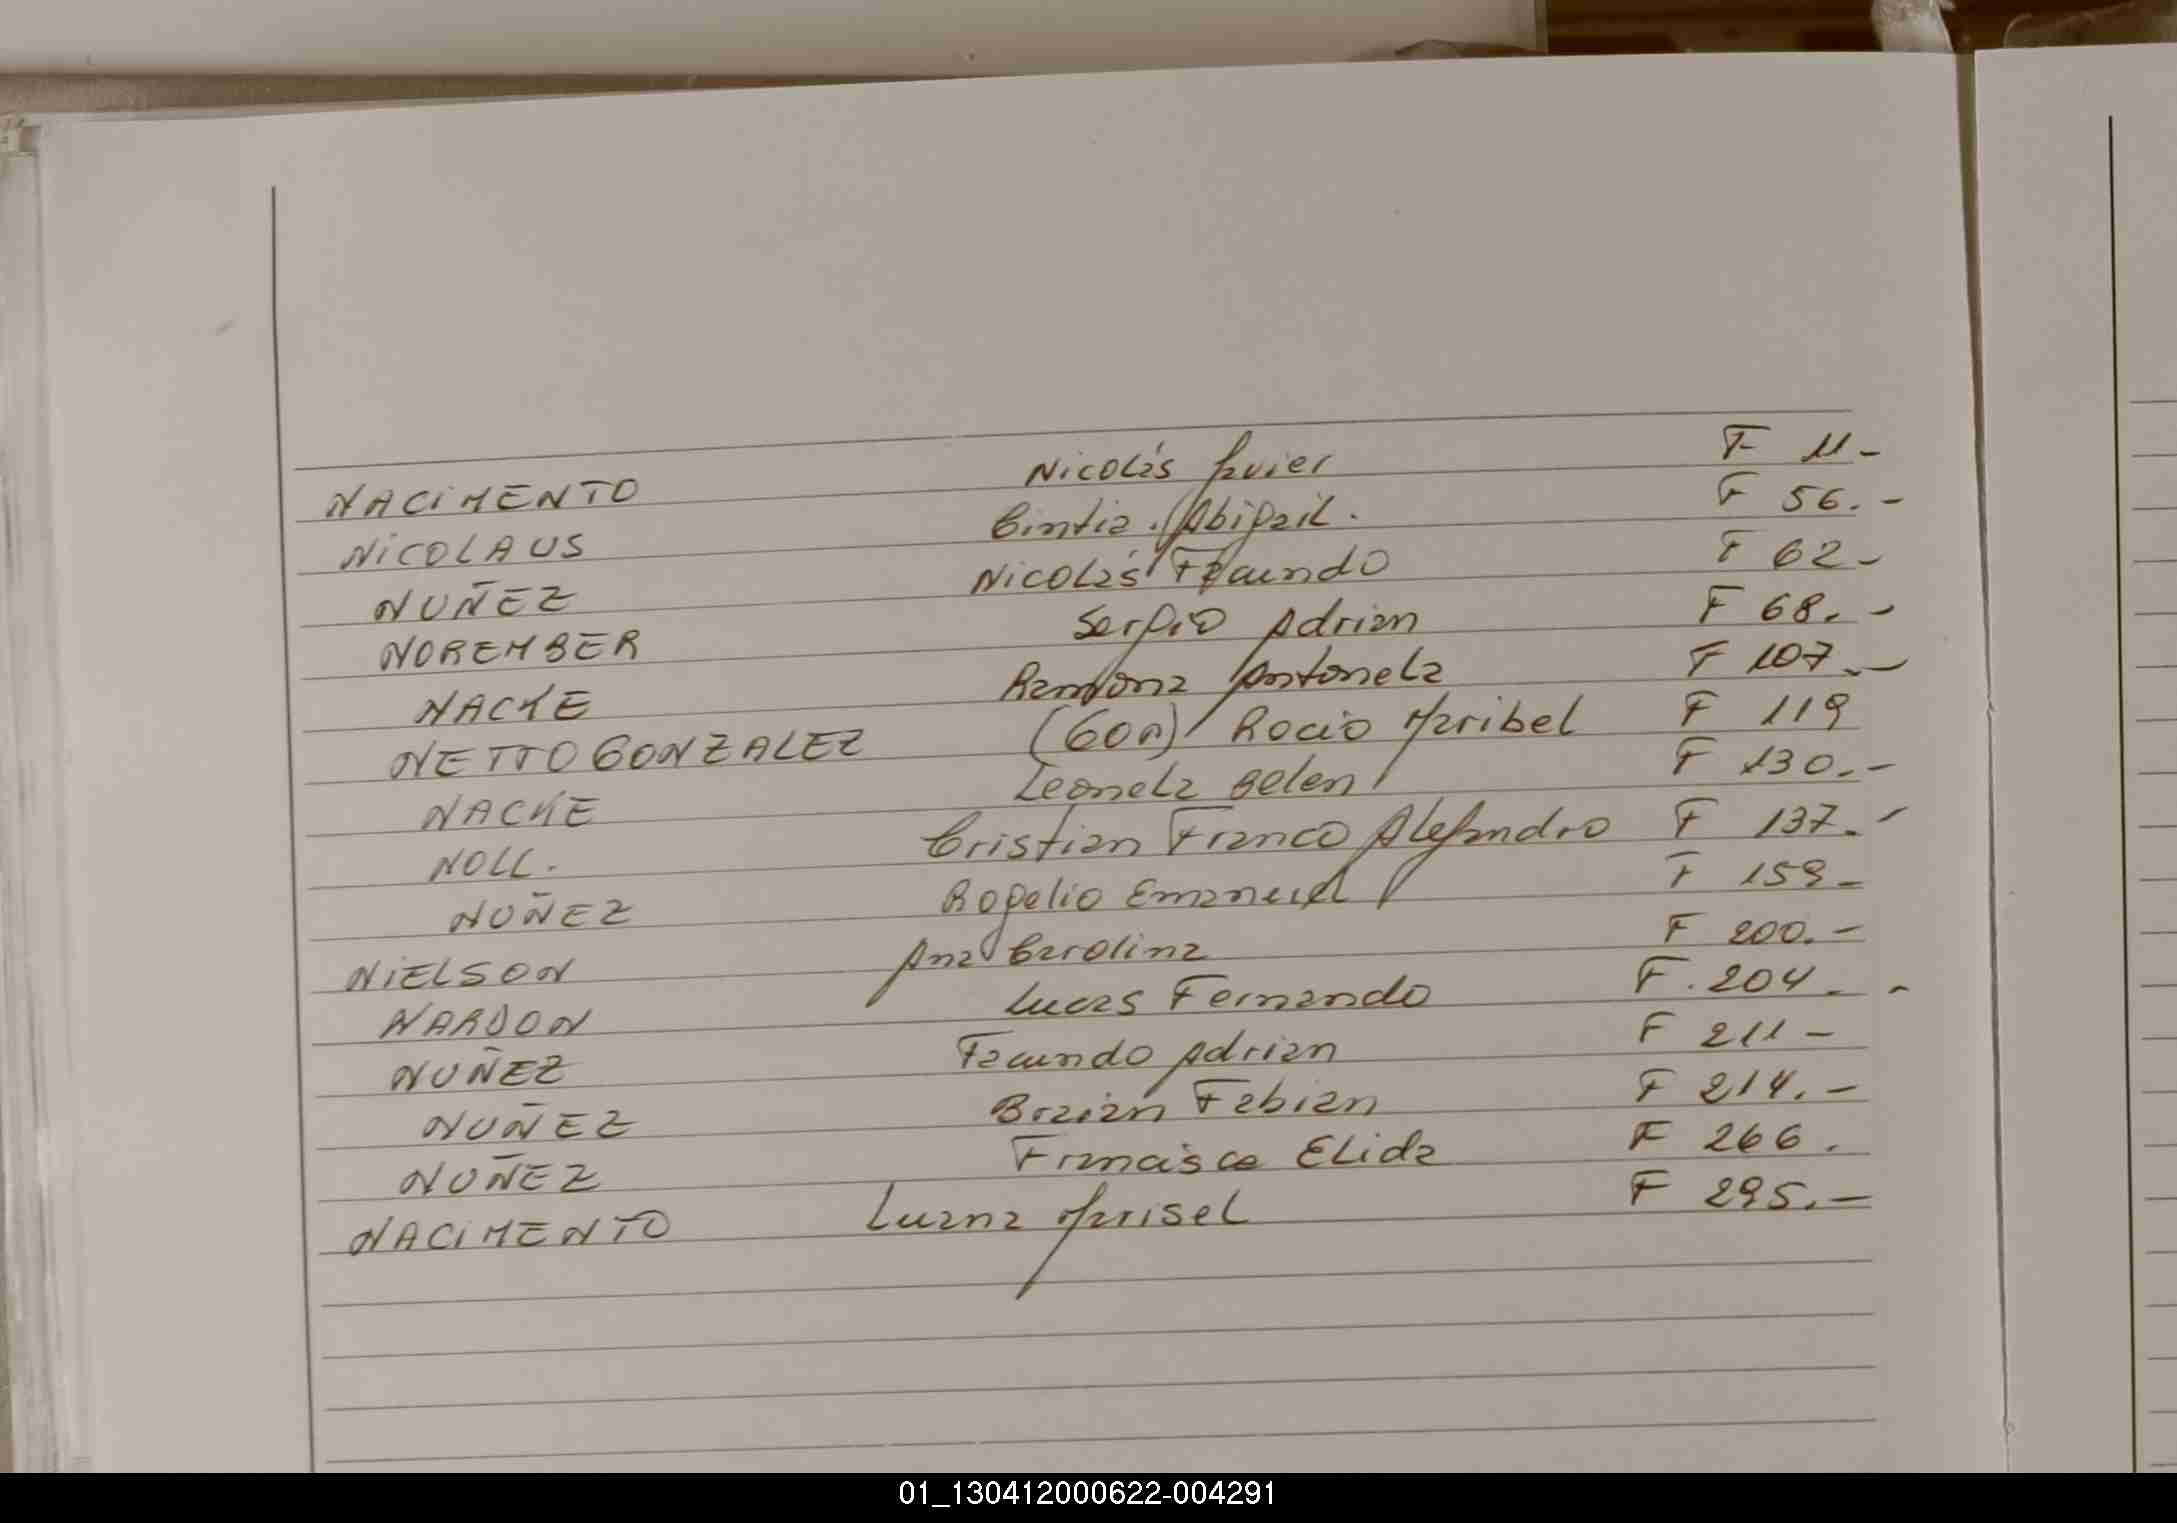 NACIMENTO Nicolás Javier F 11-
NICOLAUS Cintia Abigail. F 56.-
NUÑEZ Nicolás Facundo F 62-
NOREMBER Sergio Adrian F 68.-
NACKE Ramona Antonela F 107.-
NETTO GONZALEZ (Gon) Rocio Maribel F 119
NACKE Leonela Belen F 130.-
NOLL. Cristian Franco Alejandro F 137.-
NUÑEZ Rogelio Emanuel F 159-
NIELSON Ana Carolina F 200.-
NARDON Lucas Fernando F. 204.-
NUÑEZ Facundo Adrian F 211-
NUÑEZ Braian Fabian F 214.-
NUÑEZ Francisca Elida F 266.
NACIMENTO Luana Marisel F 295.-
01_130412000622-004291